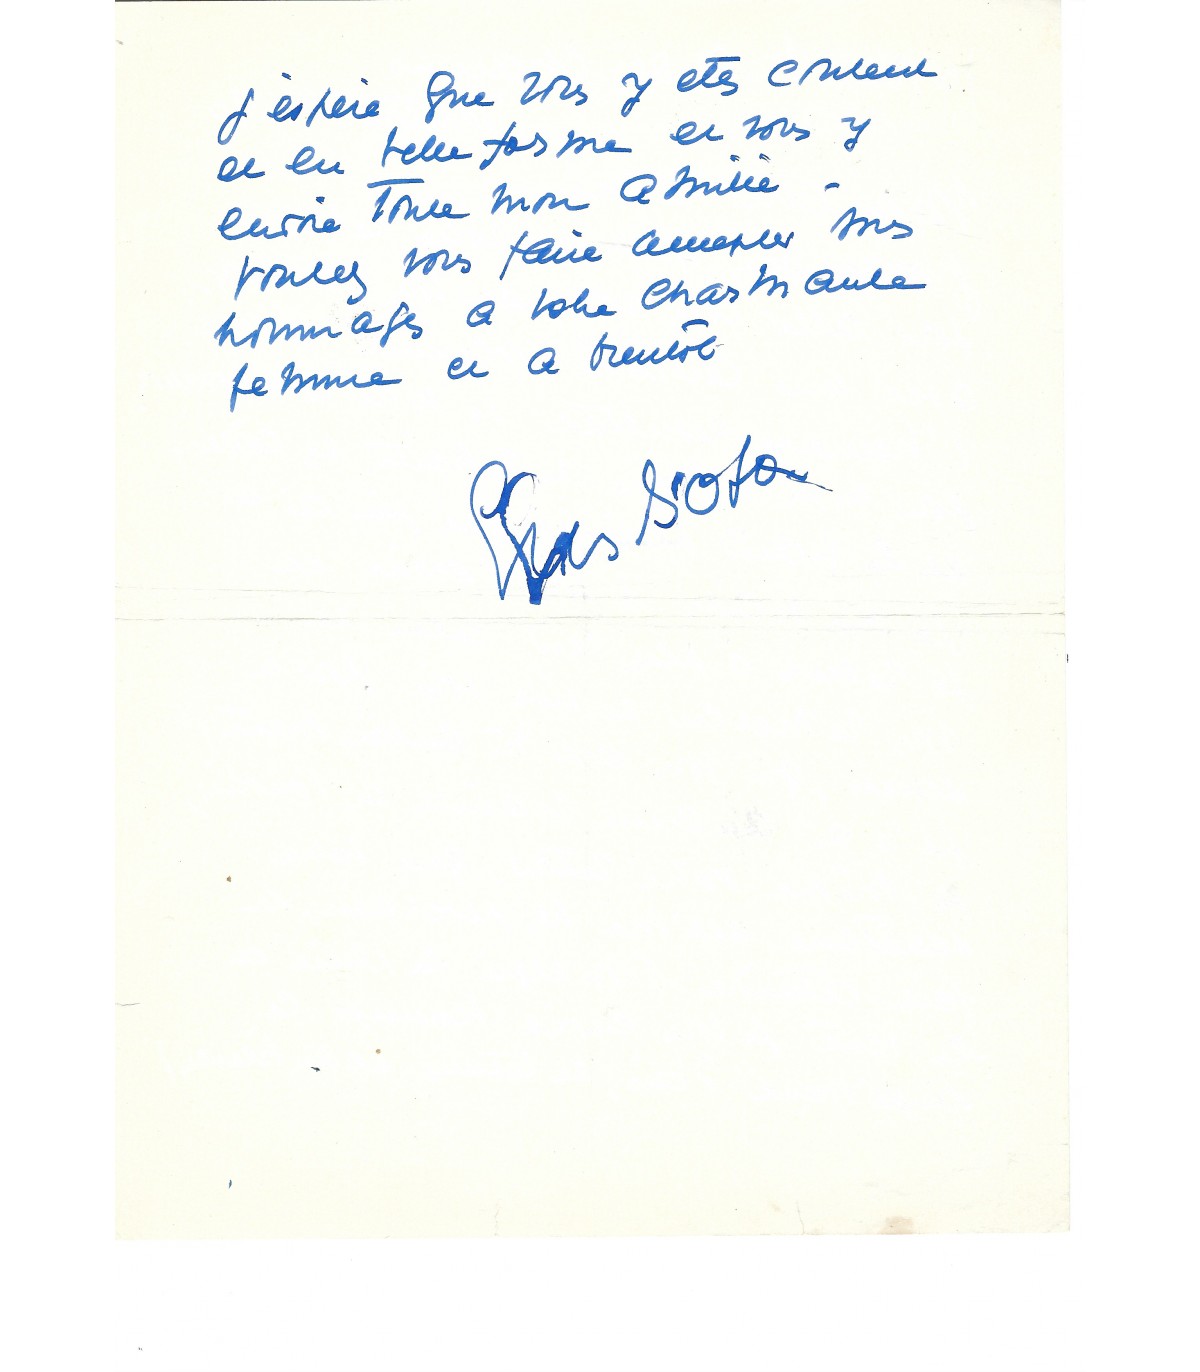 j'espère que vous y etes content
et en belle forme et vous y
envoie toute mon amitié -
voulez vous faire accepter mes
hommages a votre charmante
femme et a bientôt